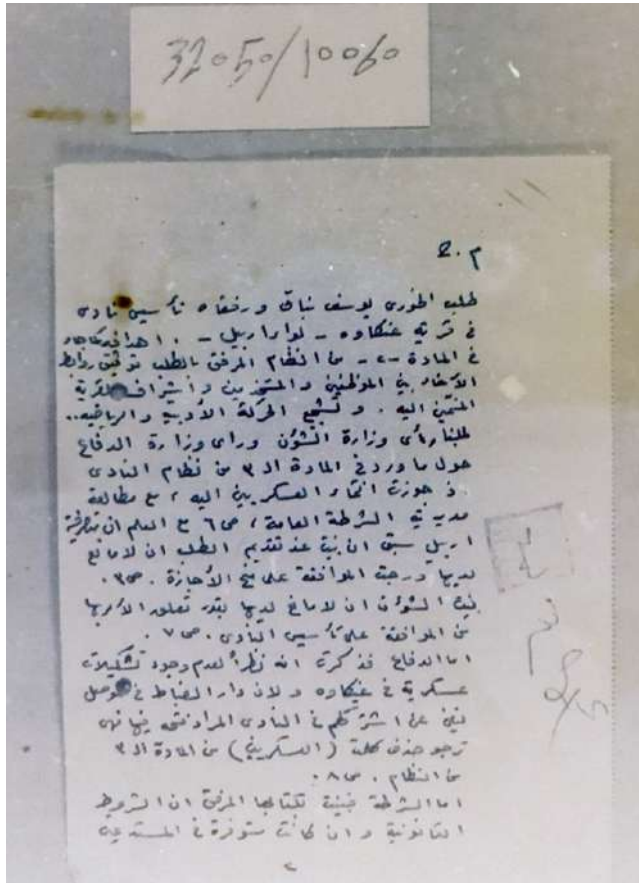 32050/10060
م.2
طلب الخوري يوسف ورفقاه تأسيس نادي
في قرية عنكاوه - لواء اربيل - . اهدافه كما جاء
في المادة -٢- من النظام المرفق بالطلب توثيق روابط
الأخاء بين الموظفين والمستخدمين وأشراف القرية
المنتمين اليه . وتشجيع الحركة الأدبية والرياضيه ..
طلبنا رأي وزارة الشؤون ورأي وزارة الدفاع
حول ما ورد في المادة الـ ٣ من نظام النادي
جوزت انتماء العسكريين اليه ، مع مطالعة
مديرية الشرطة العامة ، ص٦ مع العلم ان متصرفية
اربيل سبق ان بينت عند تقديم الطلب ان لا مانع
لديها ورجت الموافقة على منح الأجازة . ص٣ .
بينت الشؤون ان لا مانع لديها بقدر تعلق الأمر بها
من الموافقة على تأسيس النادي . ص٧ .
اما الدفاع فذكرت انه نظراً لعدم وجود تشكيلات
عسكرية في عنكاوه ولان دار الضباط في موصل
تغني عن اشتراكهم في النادي المراد فتحه فيها فهي
ترجو حذف كلمة (العسكريين) من المادة الـ ٣
من النظام . ص٨ .
اما الشرطة فبينت بكتابها المرفق ان الشروط
القانونية وان كانت متوفرة في المستدعين